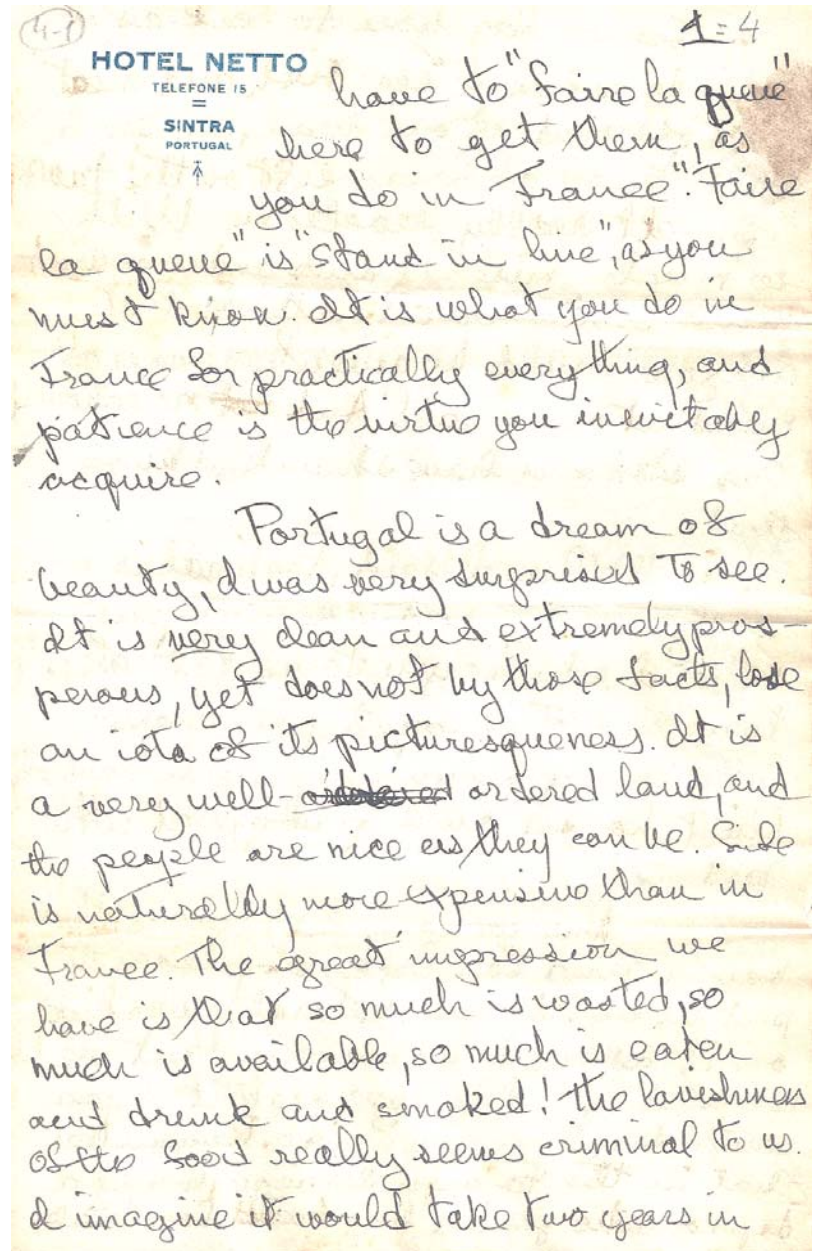 4-1
1=4
HOTEL NETTO
TELEFONE 15
SINTRA
PORTUGAL
have to "faire la queue"
here to get them, as
you do in France". "Faire
la queue" is "stand in line", as you
must know. It is what you do in
France for practically everything, and
patience is the virtue you inevitably
acquire.
Portugal is a dream of
beauty, I was very surprised to see.
It is very clean and extremely pros-
perous, yet does not by those facts, lose
an iota of its picturesqueness. It is
a very well- ordered land, and
the people are nice as they can be. Life
is naturally more expensive than in
France. The great impression we
have is that so much is wasted, so
much is available, so much is eaten
and drunk and smoked! The lavishness
of the food really seems criminal to us.
I imagine it would take two years in